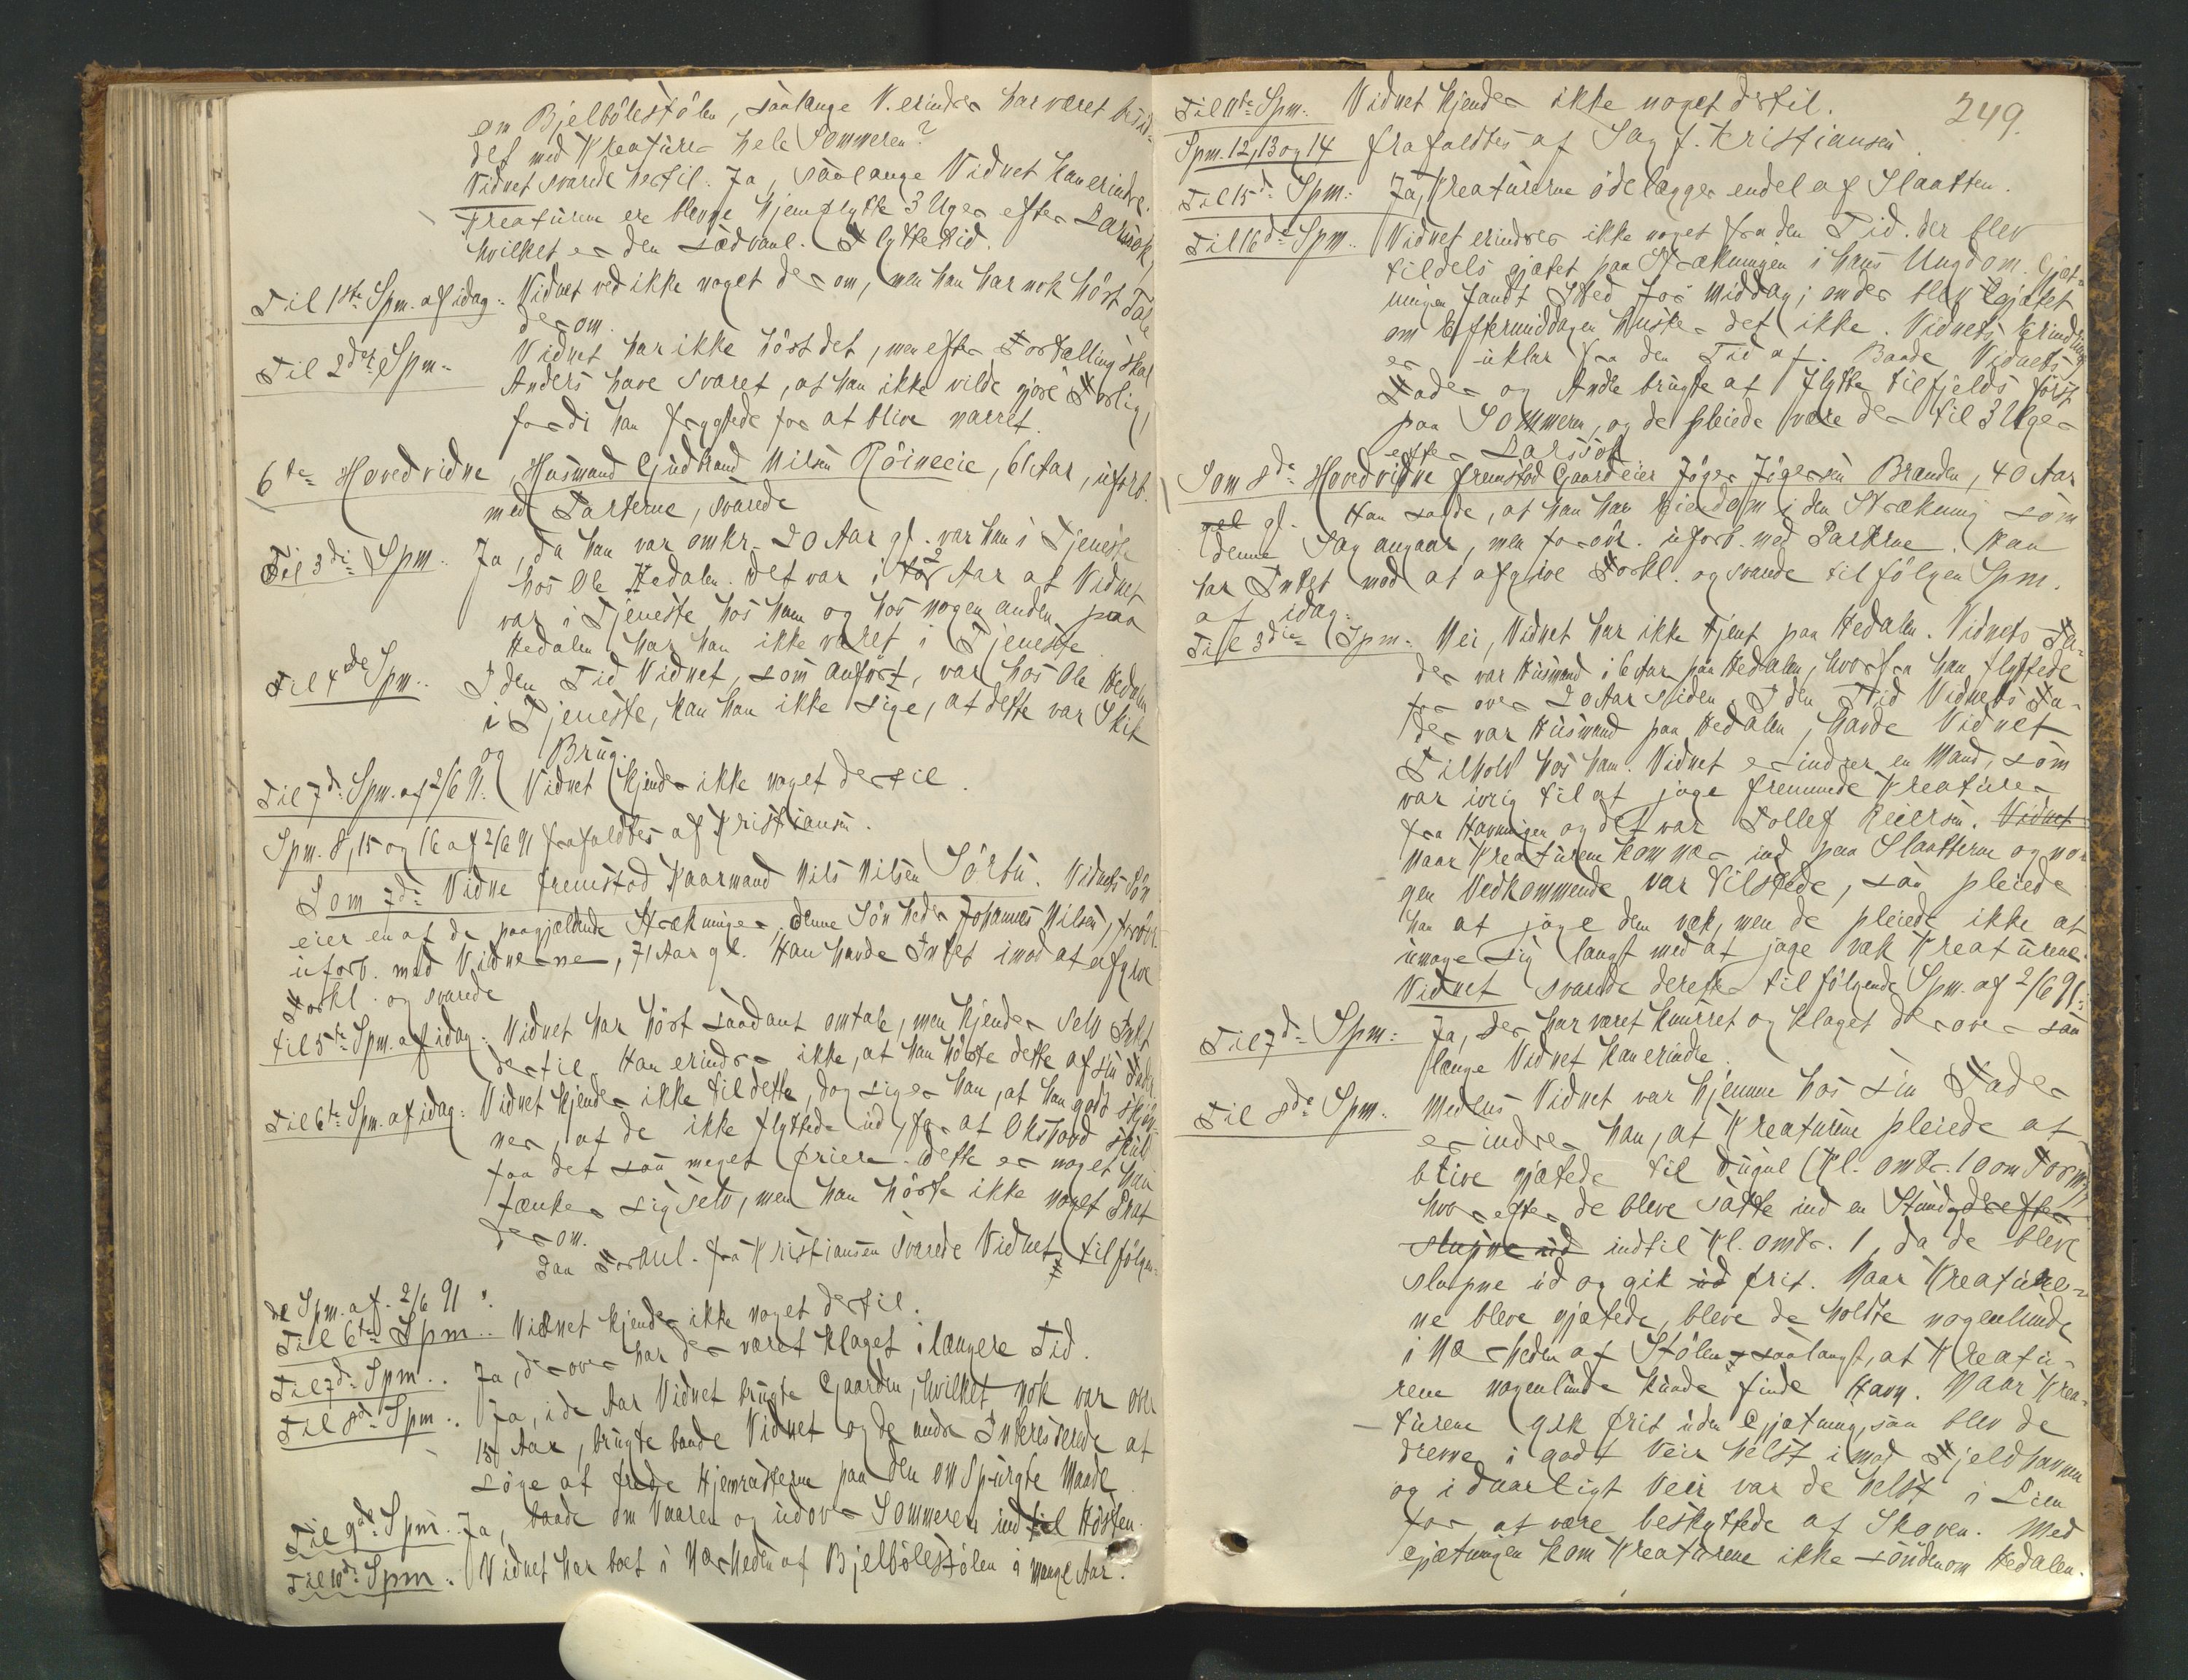 om Bjelbölestölen, saalænge V. erindrer har været bruu-
det med Kreaturer hele Sommeren?
Vidnet svarede hertil. Ja, saalænge Vidnet kan erindre.
Kreaturene ere blevne hjemflytte 3 Uger efter Larsok,
hvilket er den sædvanl. Flyttetid.
Til 1ste Spm. af idag: Vidnet ved ikke noget derom, men han har nok hört Tale
derom.
Til 2det Spm. Vidnet har ikke hört det, men efter Fortælling skal
Anders have svaret, at han ikke vilde gjöre Forlig,
fordi han frygtede for at blive narret.
6te Hovedvidne, Husmand Gudbrand Nilsen Röineeie, 61 Aar, uforb.
med Parterne, svarede
Til 3die Spm. Ja, da han var omkr. 20 Aar gl. var han i Tjeneste
hos Ole Hedalen. Det var i to Aar at Vidnet
var i Tjeneste hos ham og hos nogen anden paa
Hedalen har han ikke været i Tjeneste.
Til 4de Spm.. I den Tid Vidnet, som anfört, var hos Ole Hedalen
i Tjeneste, kan han ikke sige, at dette var Skik
og Brug.
Til 7de Spm. af 2/6 91. Vidnet kjender ikke noget dertil.
Spm. 8, 15 og 16 af 2/6 91 frafaldtes af Kristiansen.
Som 7de Vidne fremstod Kaarmand Nils Nilsen Sörbu. Vidnets Sön
eier en af de paagjældende Strækninger. Denne Sön heder Johannes Nilsen, forövr.
uforb. med Vidnerne, 71 Aar gl. Han havde Intet imod at afgive
Forkl. og svarede
til 5te Spm. af idag: Vidnet har hört saadant omtale, men kjender selv Intet
dertil. Han erindrer ikke, at han hörte dette af sin Fader.
Til 6te Spm. af idag: Vidnet kjender ikke til dette, dog siger han, at han godt skjön-
ner, at de ikke flyttede ud, for at Okshovd skuld
faa det saa meget friere. Dette er noget han
tænker sig selv, men han hörte ikke noget Snak
derom.
Paa Foranl. fra Kristiansen svarede Vidnet til fölgen-
de Spm. af. 2/6 91:
Til 6te Spm.. Vidnet kjender ikke noget dertil.
Til 7de Spm.. Ja, derover har der været klaget i længere Tid.
Til 8de Spm.. Ja, i de Aar Vidnet brugte Gaarden, hvilket nok var over
15 Aar, brugte baade Vidnet og de andre Interesserede at
söge at frede Hjemrasterne paa den omspurgte Maade.
Til 9de Spm. Ja, baade om Vaaren og udover Sommeren indtil Hösten.
Til 10de Spm. Vidnet har boet i Nærheden af Bjelbölestölen i mange Aar.
249.
Til 11te Spm. Vidnet kjender ikke noget dertil.
Spm. 12, 13 og 14 frafaldtes af Sag f. Kristiansen.
Til 15de Spm: Ja, Kreaturerne ödelægger endel af Slaatten.
Til 16de Spm.. Vidnet erindrer ikke noget fra den Tid. der blev
tildels gjætet paa Strækningen i hans Ungdom. Gjæt-
ningen fandt Sted för Middag; om der blev gjætet
om Eftermiddagen husker det ikke. Vidnets Erindring
er uklar fra den Tid af. Baade Vidnets
Fader og Andre brugte at flytte tilfjelds först
paa Sommeren, og de pleiede være der til 3 Uger
efter Larssok
Som 8de Hovedvidne fremstod Gaardeier Jöger Jögersen Branden, 40 Aar
gl. Han sagde, at han har Eiendom i den Strækning som
denne Sag angaar, men forövr. uforb. med Parterne. Han
har Intet mod at afgive Forkl. og svarede til fölgen Spm.
af idag.
Til 3die Spm. Nei, Vidnet har ikke tjent paa Hedalen. Vidnets Fa-
der var Husmand i 6 Aar paa Hedalen, hvorfra han flyttede
for over 20 Aar siden. I den Tid Vidnets Fa-
der var Husmand paa Hedalen, havde Vidnet
Tilhold hos ham. Vidnet erindrer en Mand, som
var ivrig til at jage fremmede Kreaturer
fra Havningen og det var Tollef Reiersen. Vidnet
Naar Kreaturene kommer ind paa Slaatterne og no-
gen Vedkommende var tilstede, saa pleiede
han at jage dem væk, men de pleiede ikke at
umage sig langt med at jage væk Kreaturene.
Vidnet svarede derefter til fölgende Spm. af 2/6 91:
Til 7de Spm: Ja, der har været knurret og klaget derover saa
længe Vidnet kan erindre.
Til 8de Spm. Medens Vidnet var hjemme hos sin Fader
erindrer han, at Kreaturene pleiede at
blive gjætede til Dugul (Kl. omtr. 10 om Form.)
hvorefter de bleve satte ind en Stund derefter
slupne ud indtil Kl. omtr. 1, da de bleve
slupne ud og gik ud frit. Naar Kreaturer-
ne bleve gjætede, bleve de holdte nogenlunde
i Nærheden af Stölen saalangt, at Kreatu-
rene nogenlunde kunde finde Havn. Naar Krea-
turene gik frit uden Gjætning, saa blev de
drevne i godt Veir helst imod Fjeldhavnen
og i daarligt Veir var de helst i Lien
for at være beskyttede af Skoven. Med
Gjætningen kom Kreaturene ikke söndenom Hedalen.